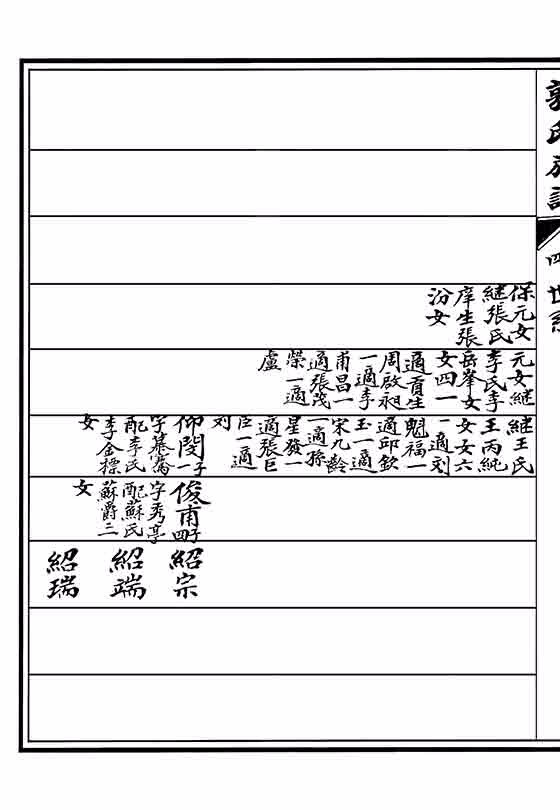 郭氏族譜
四世系
保元女
継張氏
庠生張
汾女
元女継
李氏李
岳峯女
女四一
適貢生
周啟昶
一適李
甫昌一
適張茂
榮一適
盧
継王氏
王丙純
女女六
一適刘
魁福一
適邱欽
玉一適
宋九齡
一適孫
星發一
適張巨
臣一適
刘
仰閔一子
字慕騫
配李氏
李金標
女
俊甫四子
字秀亭
配蘇氏
蘇爵三
女
紹宗
紹端
紹瑞